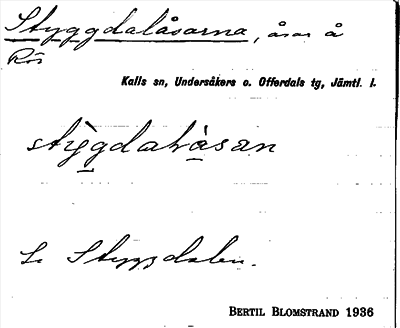 Styggdalåsarna, åsar å
Rös
Kalls sn, Undersåkers o. Offerdals tg, Jämtl. l.
Se Styggdalen.
BERTIL BLOMSTRAND 1936